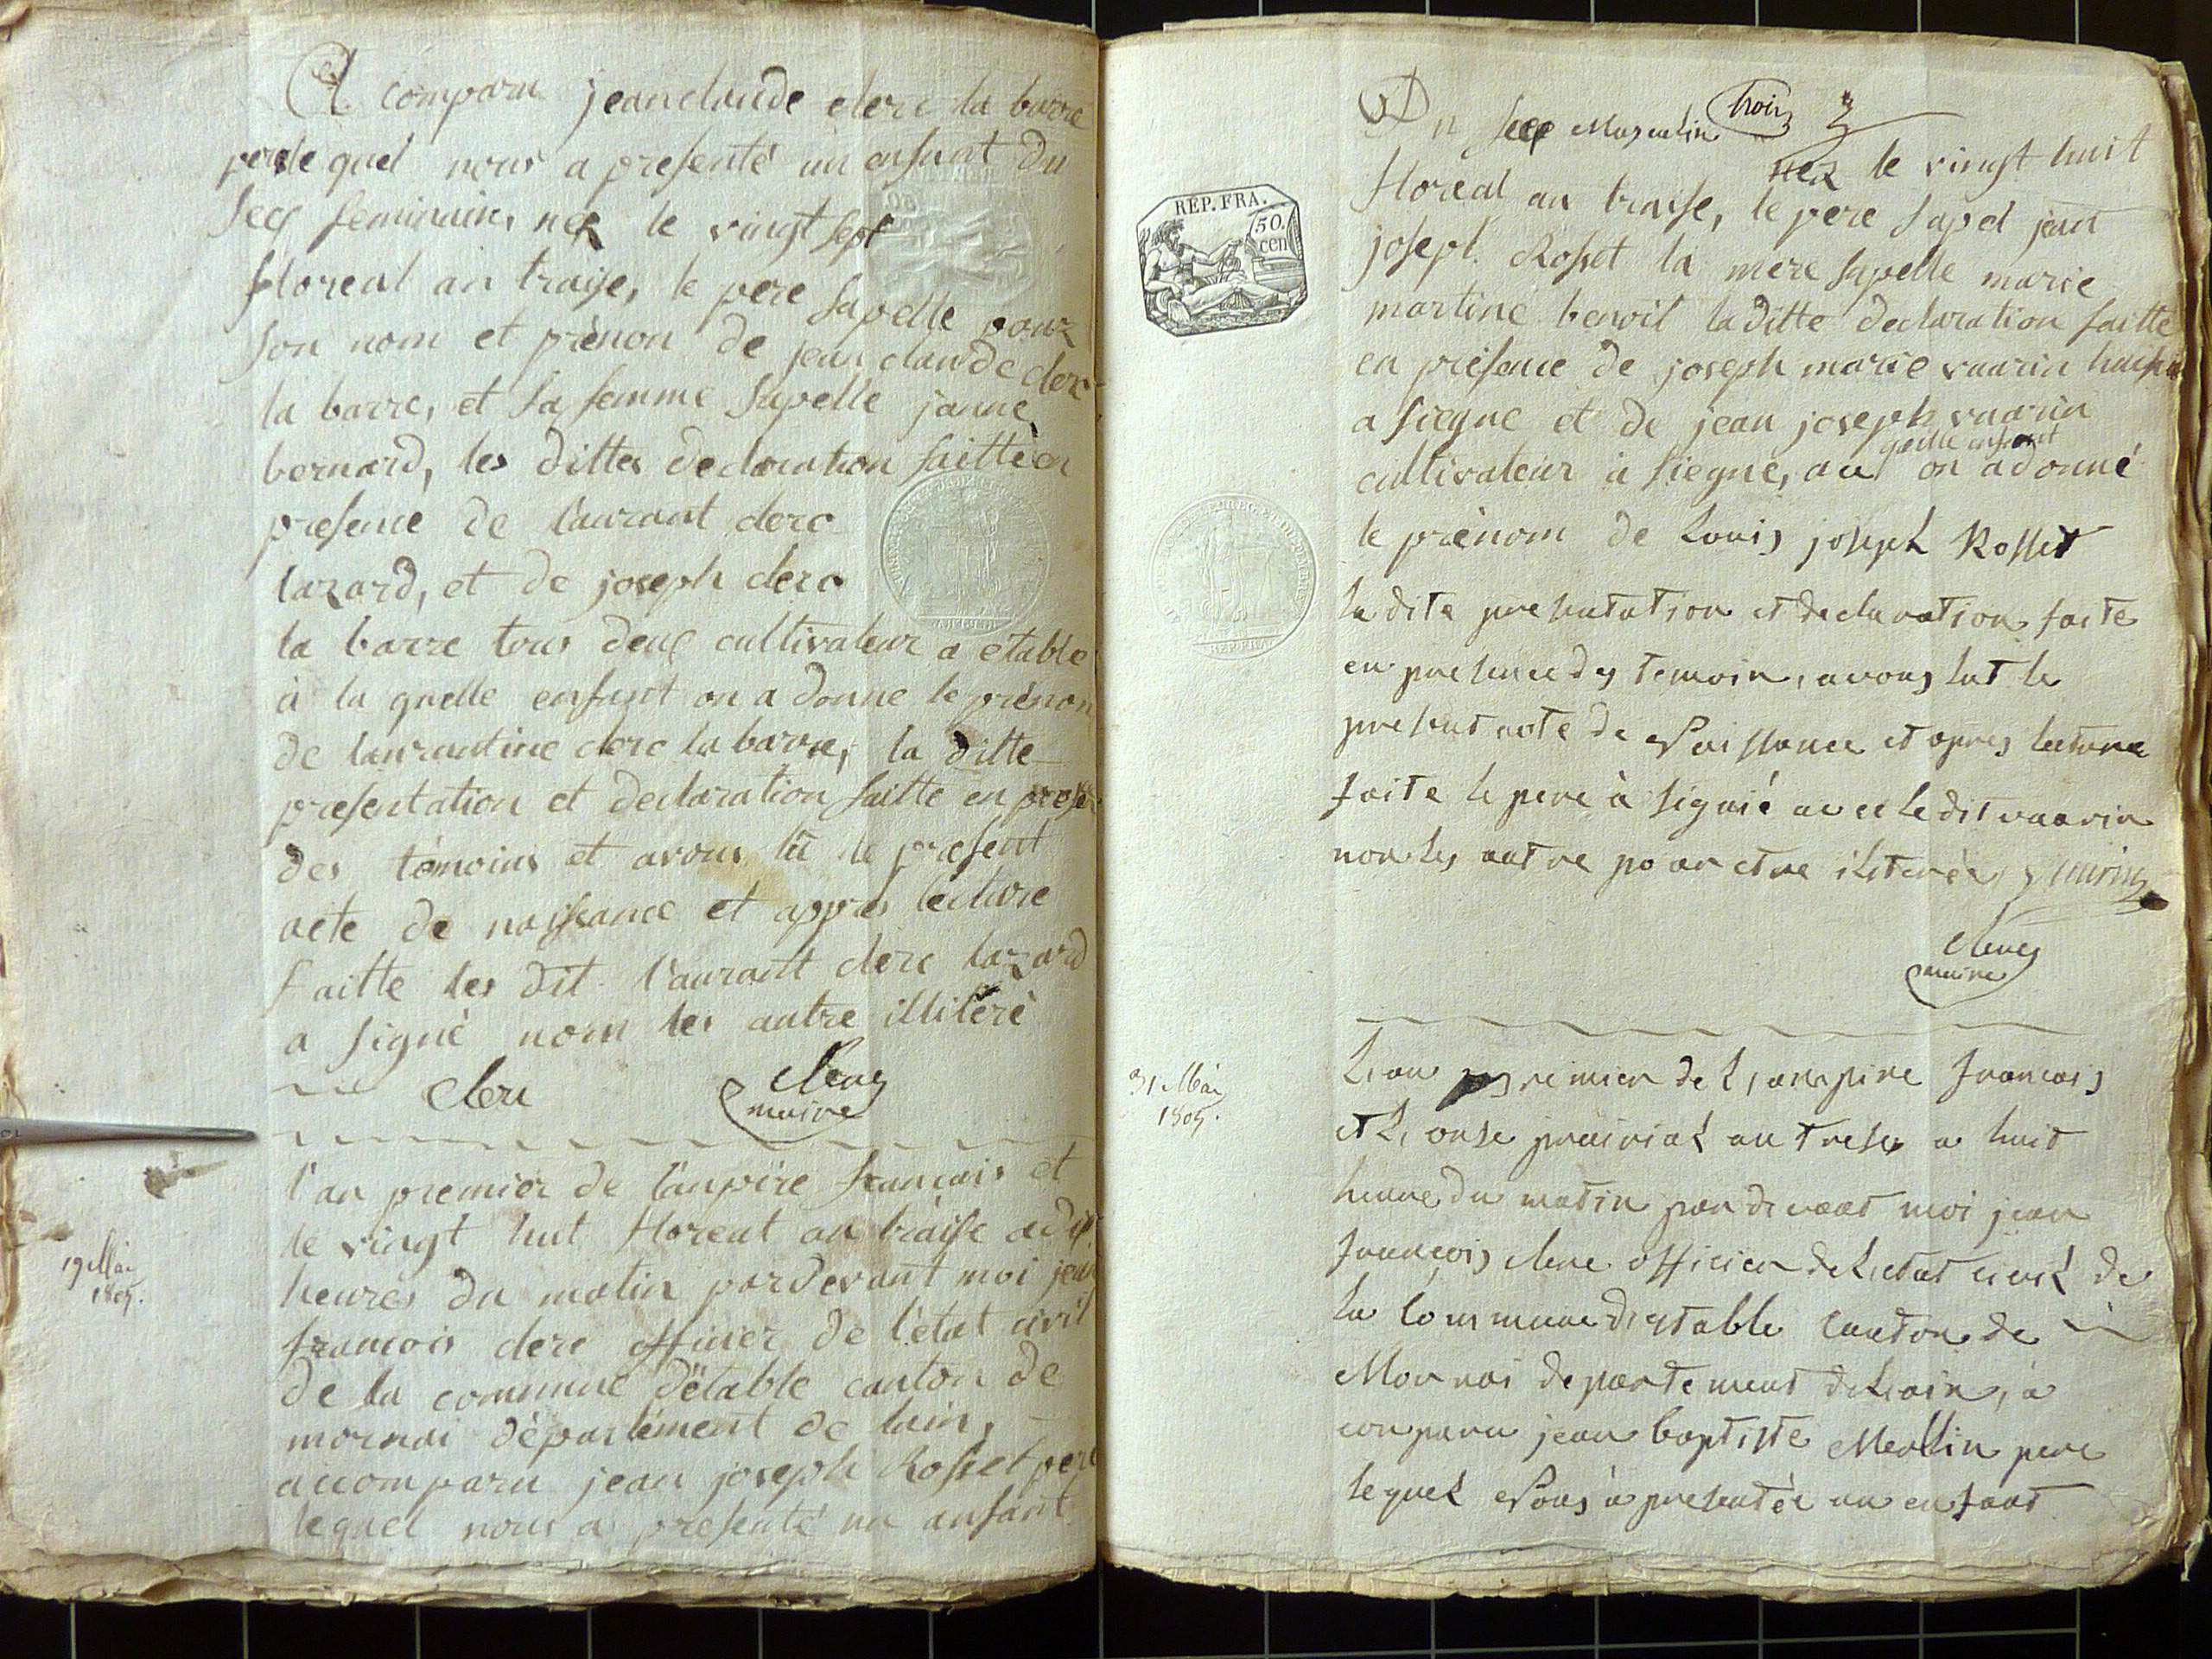 A comparu jean claude clerc la barre
pere le quel nous a presenté un enfant du
sex feminain, nez le vingt sept
floreal an traize, le pere sapelle pour
son nom et prénon de jean claude clerc
la barre, et sa femme sapelle janne
bernard, les dittes declaration faitte en
presence de l'aurant clerc
lazard, et de joseph clerc
la barre tous deux cultivateur a étable
à la quelle enfant on a donne le prénon
de laurantine clerc la barre, la ditte
presentation et declaration faitte en prese
des témoins et avons lû le present
acte de naissance et appres lecture
faitte les dit l'aurant clerc lazard
a signé nom les autre illiterè
Clerc
Clerc
maire
19 Mai
1805.
l'an premier de l'anpire français et
le vingt huit floreal an traise a dix
heures du matin pardevant moi jean
francois clerc officier de l'etat civil
de la commune d'étable canton de
mornai département de lain,
a comparu jean joseph Rosset pere
lequel nous a presenté un anfant
trois
Du sex Masculin nez le vingt huit
floreal an traise, le pere sapel jean
joseph Rosset la mere sapelle marie
martine benoit la ditte declaration faitte
en présence de joseph marie vuarin huissier
a siegne et de jean joseph vuarin
cultivateur à siegne, au quelle enfant on a donné
le prènom de Louis joseph Rosset
la dite presentation et declaration faite
en presence des temoin, avons lut le
present acte de Naissance et apres lecture
faite le pere à signié avec le dit vuarin
non les autre pour etre iliterée vuarin
Clerc
maire
REP. FRA.
50.
cen
31 Mai
1805.
L,an premier de L,anpire francois
et L, onse prairial an treses a huit
heure du matin par devant moi jean
francois clerc officier de L,etat civil de
la Commune d,etable Canton de
Mornai departement de L,ain, à
conparu jean baptiste Merllin pere
lequel Nous à presentée un enfant